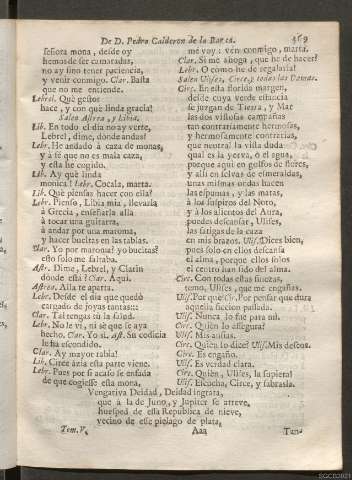 De D. Pedro Calderon de la Barca. 369
señora mona, desde oy
hemos de ser camaradas,
no ay sino tener paciencia,
y venir conmigo. Clar. Basta
que no me entiende.
Lebrel. Què gestos
hace, y con què linda gracia!
Salen Astrea, y Libia.
Lib. En todo el dia no ay verte,
Lebrel, dime, dònde andas?
Lebr. He andado à caza de monas,
y à fè que no es mala caza,
y esta he cogido.
Lib. Ay què linda
monica! Lebr. Cocala, marta.
Lib. Què piensas hacer con ella?
Lebr. Pienso, Libia mia, llevarla
à Grecia, enseñarla alli
à tocar una guitarra,
à andar por una maroma,
y hacer bueltas en las tablas.
Clar. Yo por maroma? yo bueltas?
esto solo me faltaba.
Astr. Dime, Lebrel, y Clarin
dònde està? Clar. Aqui.
Astrea. Alla te aparta.
Lebr. Desde el dia que quedò
cargado de joyas tantas:::
Clar. Tal tengas tu la salud.
Lebr. No le vi, ni sè que se aya
hecho. Clar. Yo si. Ast. Su codicia
le ha escondido.
Clar. Ay mayor rabia!
Lib. Circe àzia esta parte viene.
Lebr. Pues por si acaso se enfada
de que cogiesse esta mona,
me voy: vèn conmigo, marta.
Clar. Si me ahoga, que he de hacer?
Lebr. O còmo he de regalarla!
Salen Ulises, Circe, y todas las Damas.
Circ. En esta florida margen,
desde cuya verde estancia
se juzgan de Tierra, y Mar
las dos vistosas campañas
tan contrariamente hermosas,
y hermosamente contrarias,
que neutral la vista duda
qual es la yerva, ò el agua,
porque aqui en golfos de flores,
y alli en selvas de esmeraldas,
unas mismas ondas hacen
las espumas, y las matas,
à los suspiros del Noto,
y à los alientos del Aura,
puedes descansar, Ulises,
las fatigas de la caza
en mis brazos. Ulis. Dices bien,
pues solo en ellos descansa
el alma, porque ellos solos
el centro han sido del alma.
Circ. Con todas essas finezas,
temo, Ulises, que me engañas.
Ulis. Por què? Cir. Por pensar que dura
aquella ficcion passada.
Ulis. Nunca lo fue para mi.
Circ. Quièn lo assegura?
Ulis. Mis ansias.
Circ. Quièn lo dice? Ulis. Mis deseos.
Circ. Es engaño.
Ulis. Es verdad clara.
Circ. Quièn, Ulises, la supiera!
Ulis. Escucha, Circe, y sabrasla.
Vengativa Deidad, Deidad ingrata,
que à la de Juno, y Jupiter se atreve,
huesped de essa Republica de nieve,
vecino de esse pielago de plata,
Tom. V. Aaa Tan-
SGCB2021